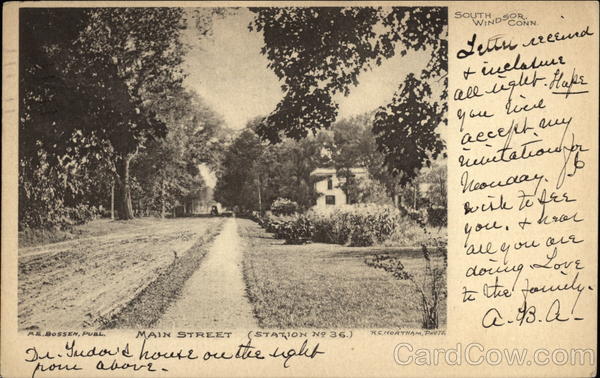 SOUTH WINDSOR,
CONN.
Letter received
& inclosure
all right. Hope
you will
accept my
invitation for
Monday. Jo
wish to see
you, & hear
all you are
doing Love
to the family.
A.B.A-
A.E. BOSSEN, PUBL.
MAIN STREET (STATION Nº 36.)
H.C. NORTHAM, PHOTO.
Dr. Tudor's house on the right
from above.
CardCow.com